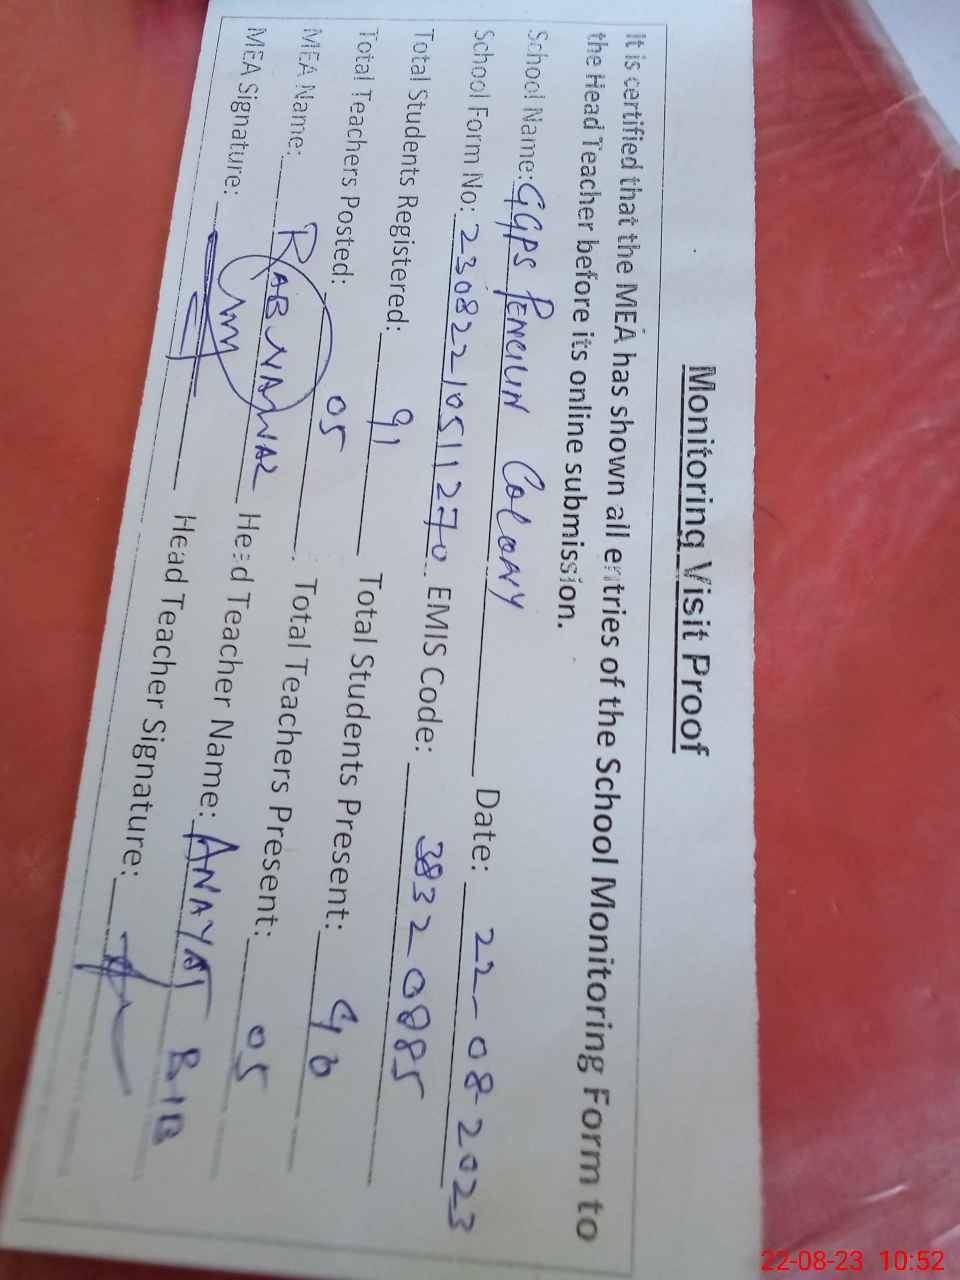 Monitoring Visit Proof
It is certified that the MEA has shown all entries of the School Monitoring Form to
the Head Teacher before its online submission.
School Name: GGPS PENCILIN COLONY Date: 22-08-2023
School Form No: 23082210511270 EMIS Code: 38320885
Total Students Registered: 91 Total Students Present: 40
Total Teachers Posted: 05 Total Teachers Present: 05
MEA Name: RAB NAWAZ Head Teacher Name: ANAYAT BIBI
MEA Signature: Head Teacher Signature:
22-08-23 10:52